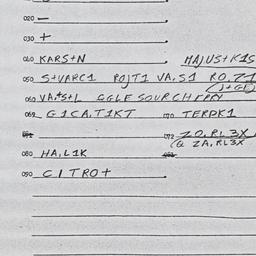 020 —
030 +
040 KARS+N MAJUS+K1S
050 S+VARC1 POJT1 VA,S1 RO,Z1
(J+GE)
060 VA,+S+L EGLE SOURCH
062 G1CA,T1KT 170 TERPK1
172 ZO,RL3X
(Q ZA,RL3X
080 HA,L1K
090 CITRO+